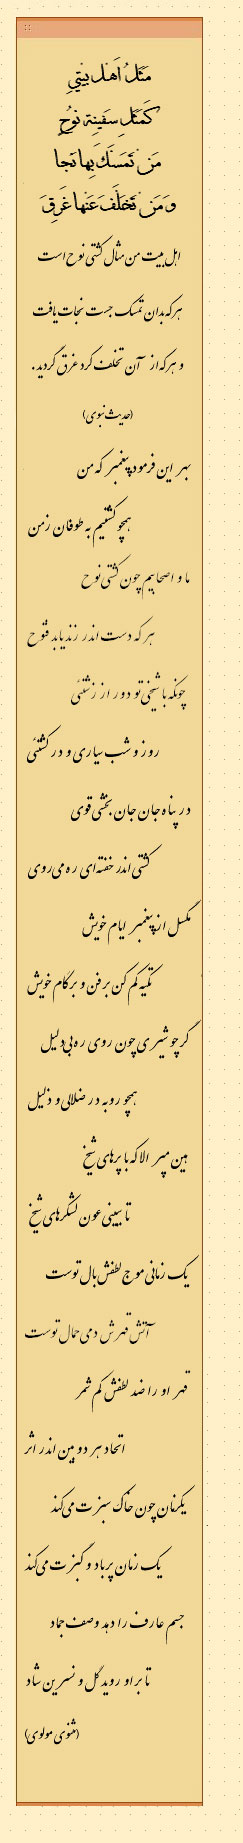 مَثَلُ اَهلِ بَیتِي
کَمَثَلِ سَفینَةِ نوُحٍ
مَن تَمَسَّکَ بِها نَجا
وَ مَن تَخَلَّفَ عَنها غَرِقَ
اهل بیت من مثال کشتی نوح است
هر که بدان تمسک جست نجات یافت
و هر که از آن تخلف کرد غرق گردید.
(حدیث نبوی)
بهر این فرمود پیغمبر که من
همچو کشتیم به طوفان زمن
ما و اصحابیم چون کشتی نوح
هر که دست اندر زند یابد فتوح
چونکه با شیخی تو دور از زشتئی
روز و شب سیاری و در کشتئی
در پناه جان جان بخشی قوی
کشتی اندر خفته‌ای ره می‌روی
مگسل از پیغمبر ایام خویش
تکیه کم کن بر فن و بر کام خویش
گرچو شیری چون روی ره بی‌دلیل
همچو روبه در ضلالی و ذلیل
هین مپر الا که با پرهای شیخ
تا ببینی عون لشکرهای شیخ
یک زمانی موج لطفش بال توست
آتش قهرش دمی حمال توست
قهر او را ضد لطفش کم شمر
اتحاد هر دو بین اندر اثر
یکزمان چون خاک سبزت می‌کند
یک زمان پرباد و گبزت می‌کند
جسم عارف را دهد وصف جماد
تا بر او روید گل و نسرین شاد
(مثنوی مولوی)